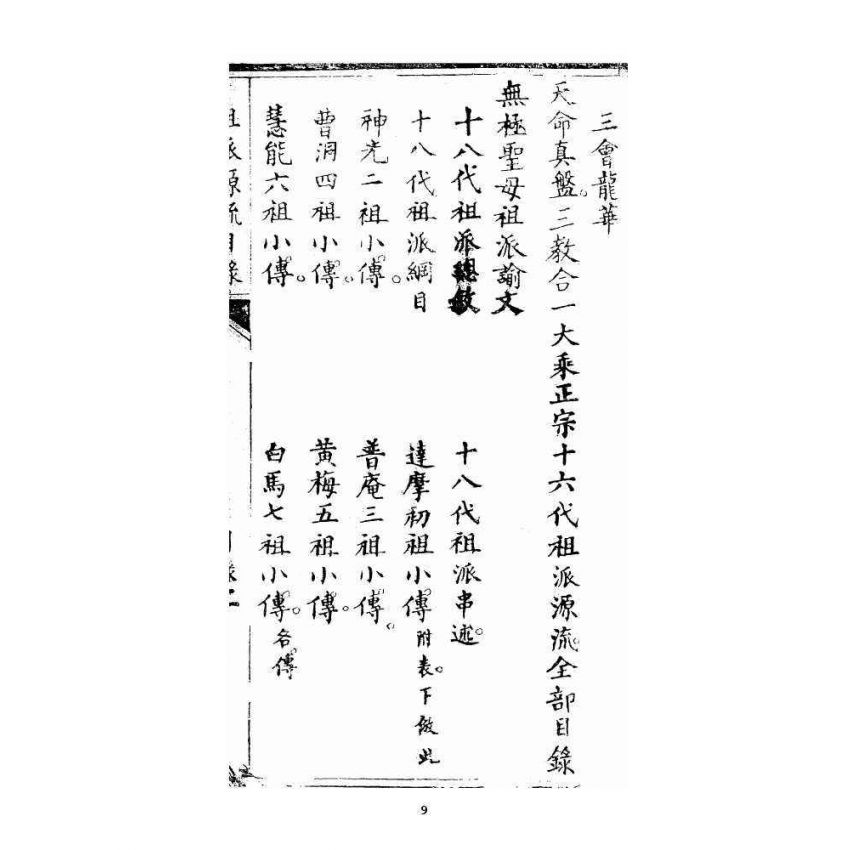 三會龍華
天命真盤。三教合一大乘正宗十六代祖派源流全部目錄
無極聖母祖派諭文
十八代祖派總敘 十八代祖派串述。
十八代祖派綱目 達摩初祖小傳附表。下倣此
神光二祖小傳。 普庵三祖小傳。
曹洞四祖小傳。 黃梅五祖小傳。
慧能六祖小傳。 白馬七祖小傳。各傳
祖派源流目錄
9